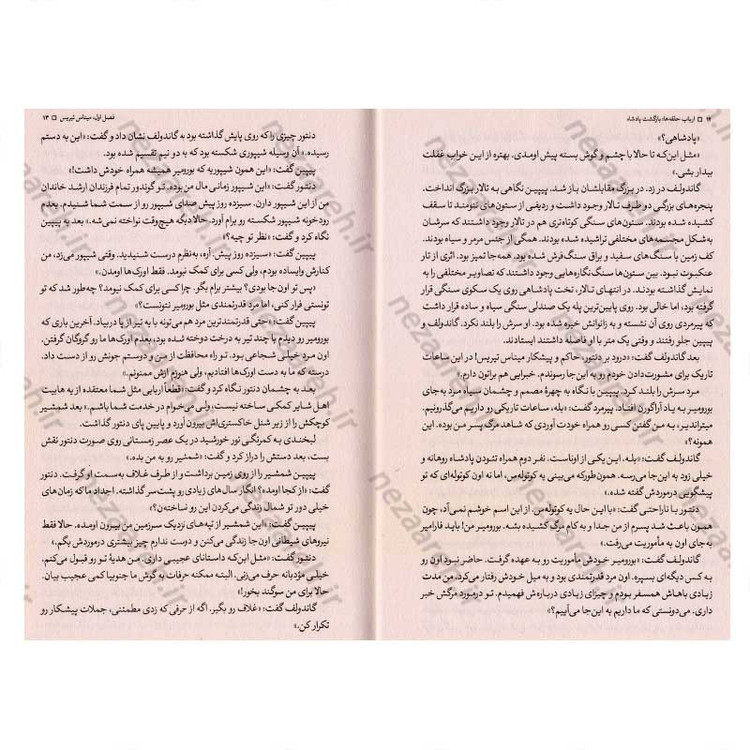 ۱۲ □ ارباب حلقه‌ها: بازگشت پادشاه
«پادشاهی؟»
«مثل این‌که تا حالا با چشم و گوش بسته پیش اومدی. بهتره از این خواب غفلت
بیدار بشی.»
گاندولف در زد. در بزرگ مقابلشان باز شد. پیپین نگاهی به تالار بزرگ انداخت.
پنجره‌های بزرگی دو طرف تالار وجود داشت و ردیفی از ستون‌های تنومند تا سقف
کشیده شده بودند. ستون‌های سنگی کوتاه‌تری هم در تالار وجود داشتند که سرشان
به‌شکل مجسمه‌های مختلفی تراشیده شده بودند. همگی از جنس مرمر و سیاه بودند.
کف زمین با سنگ‌های سفید و براق سنگ فرش شده بود. همه‌جا تمیز بود. اثری از تار
عنکبوت نبود. بین ستون‌ها سنگ‌نگاره‌هایی وجود داشتند که تصاویر مختلفی را به
نمایش گذاشته بودند. در انتهای تالار، تخت پادشاهی روی یک سکوی سنگی قرار
گرفته بود، اما خالی بود. روی پایین‌ترین پله یک صندلی سنگی سیاه و ساده قرار داشت
که پیرمردی روی آن نشسته و به زانوانش خیره شده بود. او سرش را بلند نکرد. گاندولف و
پیپین جلو رفتند و وقتی یک متر با او فاصله داشتند ایستادند.
بعد گاندولف گفت: «درود بر دنتور، حاکم و پیشکار میناس تیریس! در این ساعات
تاریک برای مشورت‌دادن خودم رو به این‌جا رسوندم. خبرایی هم براتون دارم.»
مرد سرش را بلند کرد. پیپین با نگاه به چهرهٔ مصمم و چشمان سیاه مرد به‌جای
بورومیر به یاد آراگورن افتاد. پیرمرد گفت: «بله، ساعات تاریکی رو داریم می‌گذرونیم.
میتراندیر، به من گفتن کسی رو همراه خودت آوردی که شاهد مرگ پسر من بوده. این
همونه؟»
گاندولف گفت: «بله. این یکی از اوناست. نفر دوم همراه تئودن پادشاه روهانه و
خیلی زود به این‌جا می‌رسه. همون‌طور که می‌بینی یه کوتوله‌س، اما نه اون کوتوله‌ای که تو
پیشگویی درموردش گفته شد.»
دنتور با ناراحتی گفت: «با این حال یه کوتوله‌س. از این اسم خوشم نمی‌آد، چون
همون باعث شد پسرم از من جدا و به کام مرگ کشیده بشه. بورومیر من! باید فارامیر
به‌جای اون به مأموریت می‌رفت.»
گاندولف گفت: «بورومیر خودش مأموریت رو به عهده گرفت. حاضر نبود اون رو
به کس دیگه‌ای بسپره. اون مرد قدرتمندی بود و به میل خودش رفتار می‌کرد. من مدت
زیادی باهاش همسفر بودم و چیزای زیادی درباره‌ش فهمیدم. تو درمورد مرگش خبر
داری. می‌دونستی که ما داریم به این‌جا می‌آییم؟»
فصل اول: میناس تیریس □ ۱۳
دنتور چیزی را که روی پایش گذاشته بود به گاندولف نشان داد و گفت: «این به دستم
رسیده.» آن وسیله شیپوری شکسته بود که به دو نیم تقسیم شده بود.
پیپین گفت: «این همون شیپوریه که بورومیر همیشه همراه خودش داشت!»
دنتور گفت: «این شیپور زمانی مال من بوده. تو گوندور تمام فرزندان ارشد خاندان
من از این شیپور دارن. سیزده روز پیش صدای شیپور رو از سمت شما شنیدم. بعدم
رودخونه شیپور شکسته رو برام آورد. حالا دیگه هیچ‌وقت نواخته نمی‌شه.» بعد به پیپین
نگاه کرد و گفت: «نظر تو چیه؟»
پیپین گفت: «سیزده روز پیش. آره، به‌نظرم درست شنیدید. وقتی شیپور می‌زد، من
کنارش وایساده بودم، ولی کسی برای کمک نیومد. فقط اورک‌ها اومدن.»
«پس تو اون‌جا بودی؟ بیشتر برام بگو. چرا کسی برای کمک نیومد؟ چه‌طور شد که تو
تونستی فرار کنی، اما مرد قدرتمندی مثل بورومیر نتونست؟»
پیپین گفت: «حتی قدرتمندترین مرد هم می‌تونه با یه تیر از پا دربیاد. آخرین باری که
بورومیر رو دیدم با چند تیر به درخت دوخته شده بود، بعدم اورک‌ها ما رو گروگان گرفتن.
اون مرد خیلی شجاعی بود. تو راه محافظت از من و دوستم جونش رو از دست داد.
درسته که ما به دست اورک‌ها افتادیم، ولی هنوزم ازش ممنونم.»
بعد به چشمان دنتور نگاه کرد و گفت: «قطعاً اربابی مثل شما معتقده از یه هابیت
اهل شایر کمکی ساخته نیست، ولی می‌خوام در خدمت شما باشم.» بعد شمشیر
کوچکش را از زیر شنل خاکستری‌اش بیرون آورد و پایین پای دنتور گذاشت.
لبخندی به کمرنگی نور خورشید در یک عصر زمستانی روی صورت دنتور نقش
بست، بعد دستش را دراز کرد و گفت: «شمشیر رو به من بده.»
پیپین شمشیر را از روی زمین برداشت و از طرف غلاف به‌سمت او گرفت. دنتور
گفت: «از کجا اومده؟ انگار سال‌های زیادی رو پشت‌سر گذاشته. اجداد ما که زمان‌های
خیلی دور تو شمال زندگی می‌کردن این رو نساختن؟»
پیپین گفت: «این شمشیر از تپه‌های نزدیک سرزمین من بیرون اومده. حالا فقط
نیروهای شیطانی اون‌جا زندگی می‌کنن و دوست ندارم چیز بیشتری درموردش بگم.»
دنتور گفت: «مثل این‌که داستانای عجیبی داری. من هدیهٔ تو رو قبول می‌کنم.
خیلی مؤدبانه حرف می‌زنی. البته ممکنه حرفات به گوش ما جنوبیا کمی عجیب بیان.
حالا برای من سوگند بخور!»
گاندولف گفت: «غلاف رو بگیر. اگه از حرفی که زدی مطمئنی، جملات پیشکار رو
تکرار کن.»
nezaareh.ir